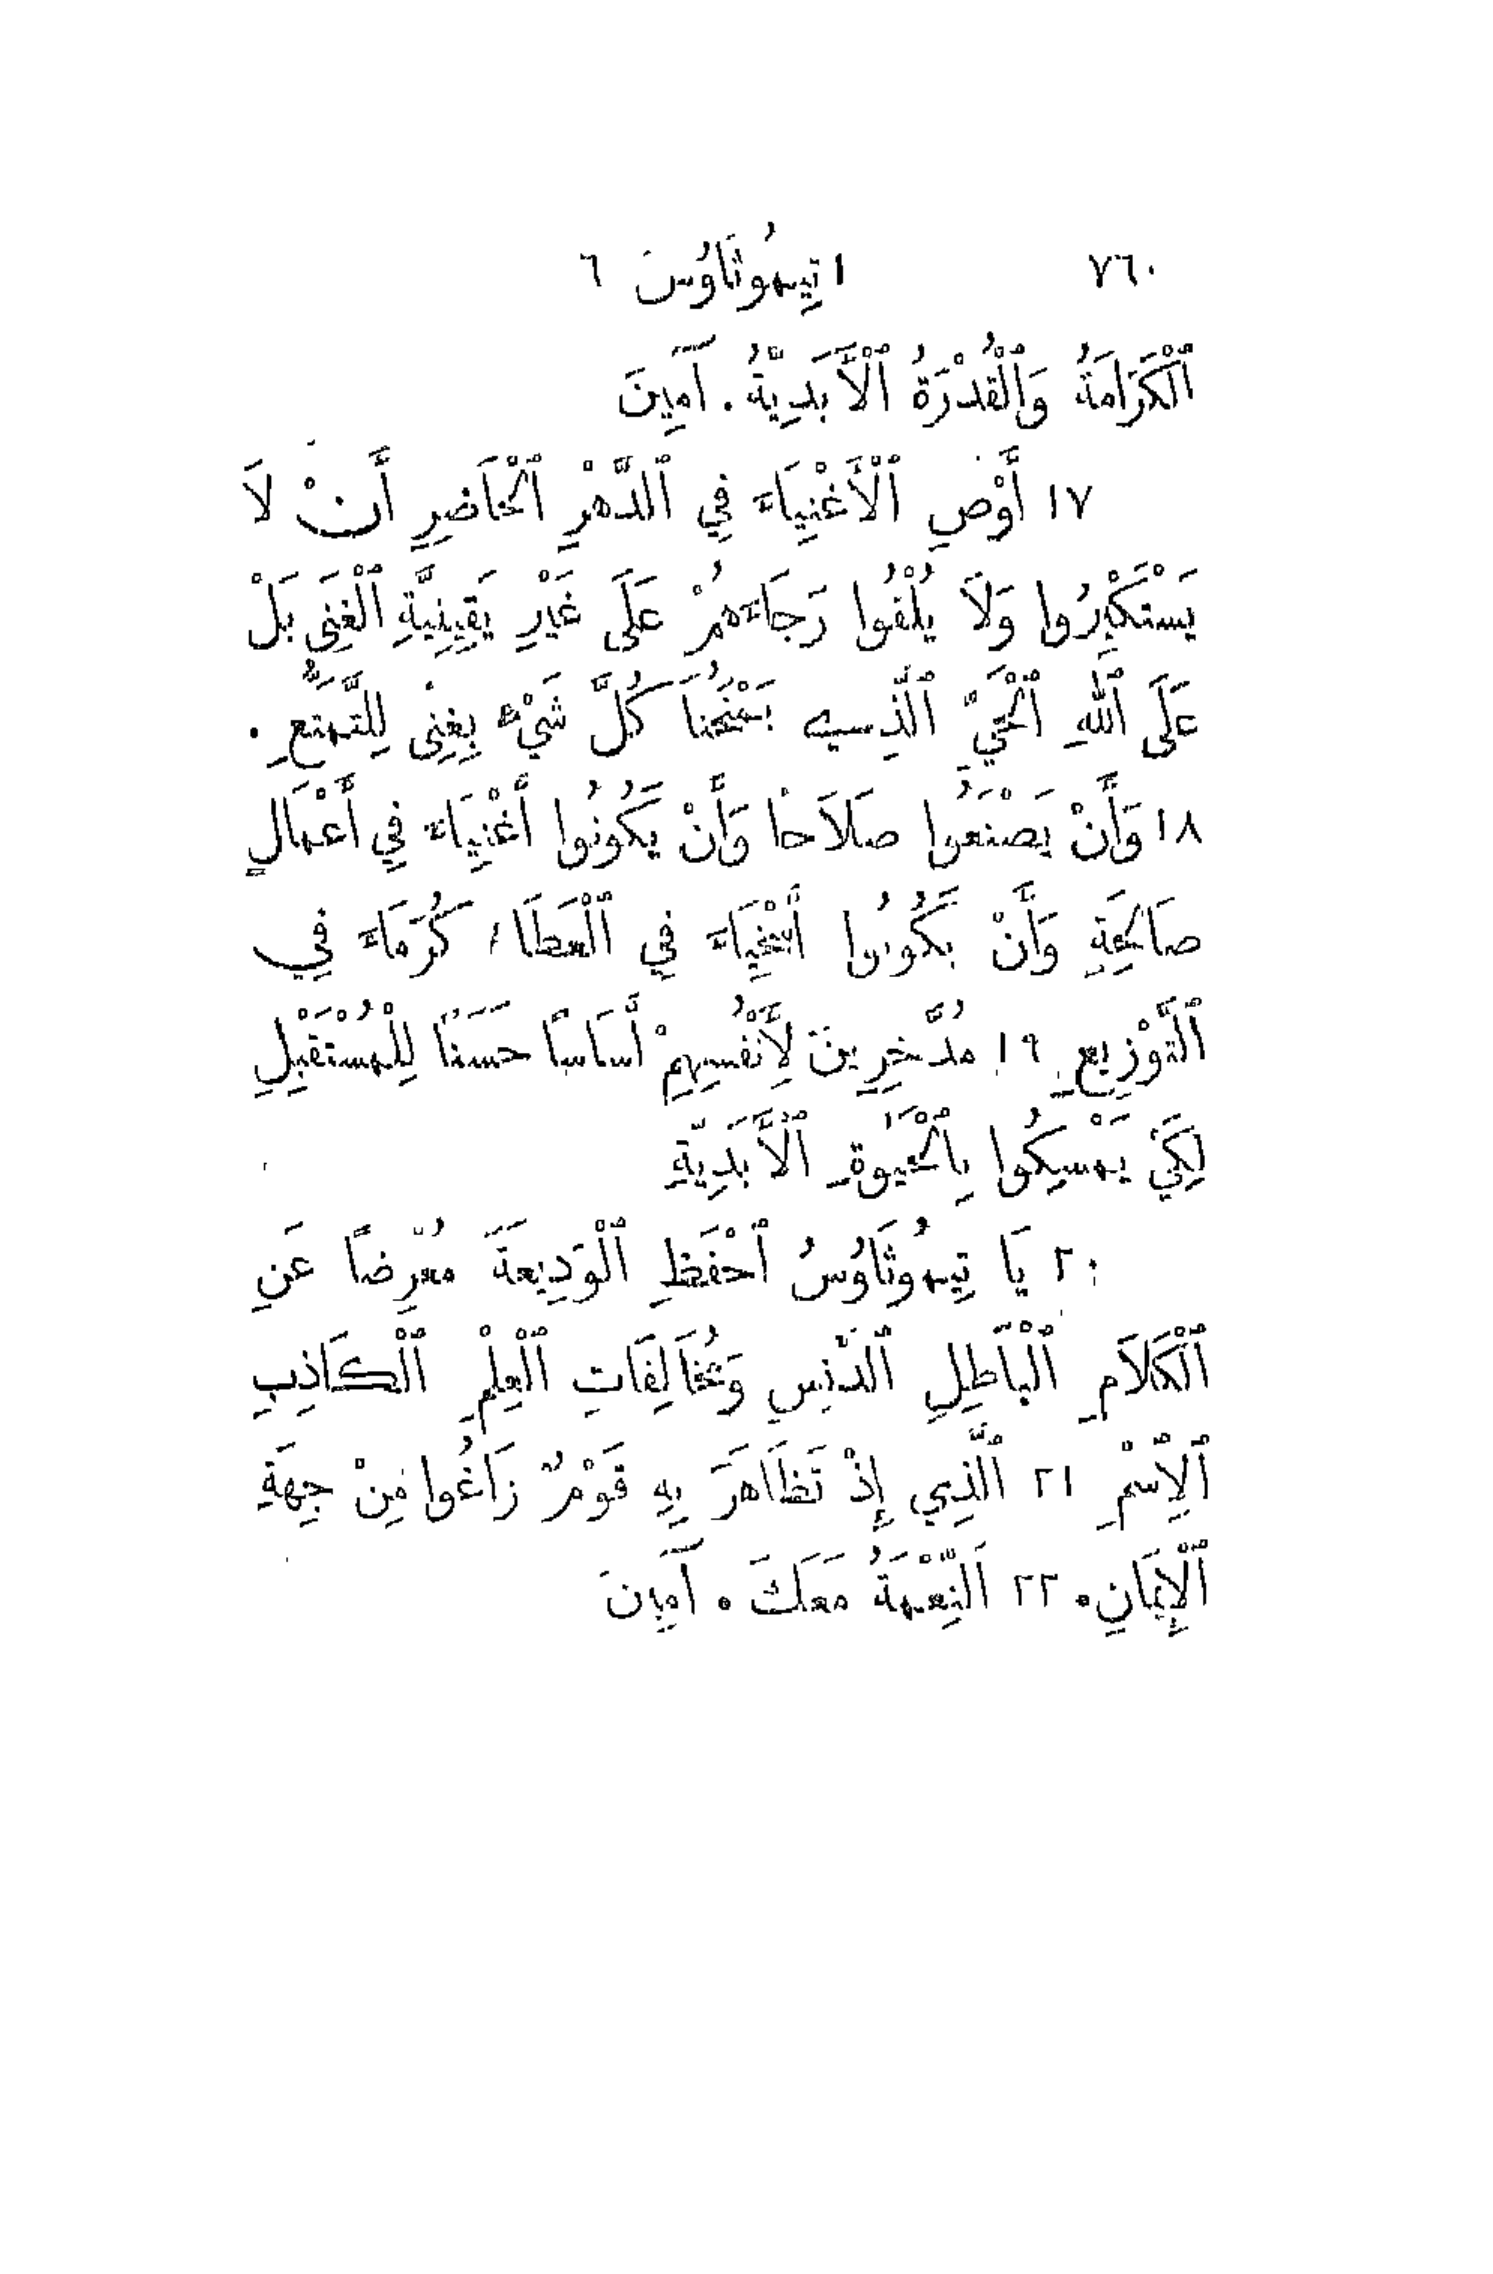 ٧٦٠ ١ تِيمُوثَاوُسَ ٦
ٱلْكَرَامَةُ وَٱلْقُدْرَةُ ٱلْأَبَدِيَّةُ. آمِينَ
١٧ أَوْصِ ٱلْأَغْنِيَاءَ فِي ٱلدَّهْرِ ٱلْحَاضِرِ أَنْ لَا
يَسْتَكْبِرُوا وَلَا يُلْقُوا رَجَاءَهُمْ عَلَى غَيْرِ يَقِينِيَّةِ ٱلْغِنَى بَلْ
عَلَى ٱللهِ ٱلْحَيِّ ٱلَّذِي يَمْنَحُنَا كُلَّ شَيْءٍ بِغِنًى لِلتَّمَتُّعِ.
١٨ وَأَنْ يَصْنَعُوا صَلَاحًا وَأَنْ يَكُونُوا أَغْنِيَاءَ فِي أَعْمَالٍ
صَالِحَةٍ وَأَنْ يَكُونُوا أَسْخِيَاءَ فِي ٱلْعَطَاءِ كُرَمَاءَ فِي
ٱلتَّوْزِيعِ ١٩ مُدَّخِرِينَ لِأَنْفُسِهِمْ أَسَاسًا حَسَنًا لِلْمُسْتَقْبِلِ
لِكَيْ يُمْسِكُوا بِٱلْحَيٰوةِ ٱلْأَبَدِيَّةِ
٢٠ يَا تِيمُوثَاوُسُ ٱحْفَظِ ٱلْوَدِيعَةَ مُعْرِضًا عَنِ
ٱلْكَلَامِ ٱلْبَاطِلِ ٱلدَّنِسِ وَمُخَالِفَاتِ ٱلْعِلْمِ ٱلْكَاذِبِ
ٱلِٱسْمِ ٢١ ٱلَّذِي إِذْ تَظَاهَرَ بِهِ قَوْمٌ زَاغُوا مِنْ جِهَةِ
ٱلْإِيمَانِ. ٢٢ اَلنِّعْمَةُ مَعَكَ. آمِينَ